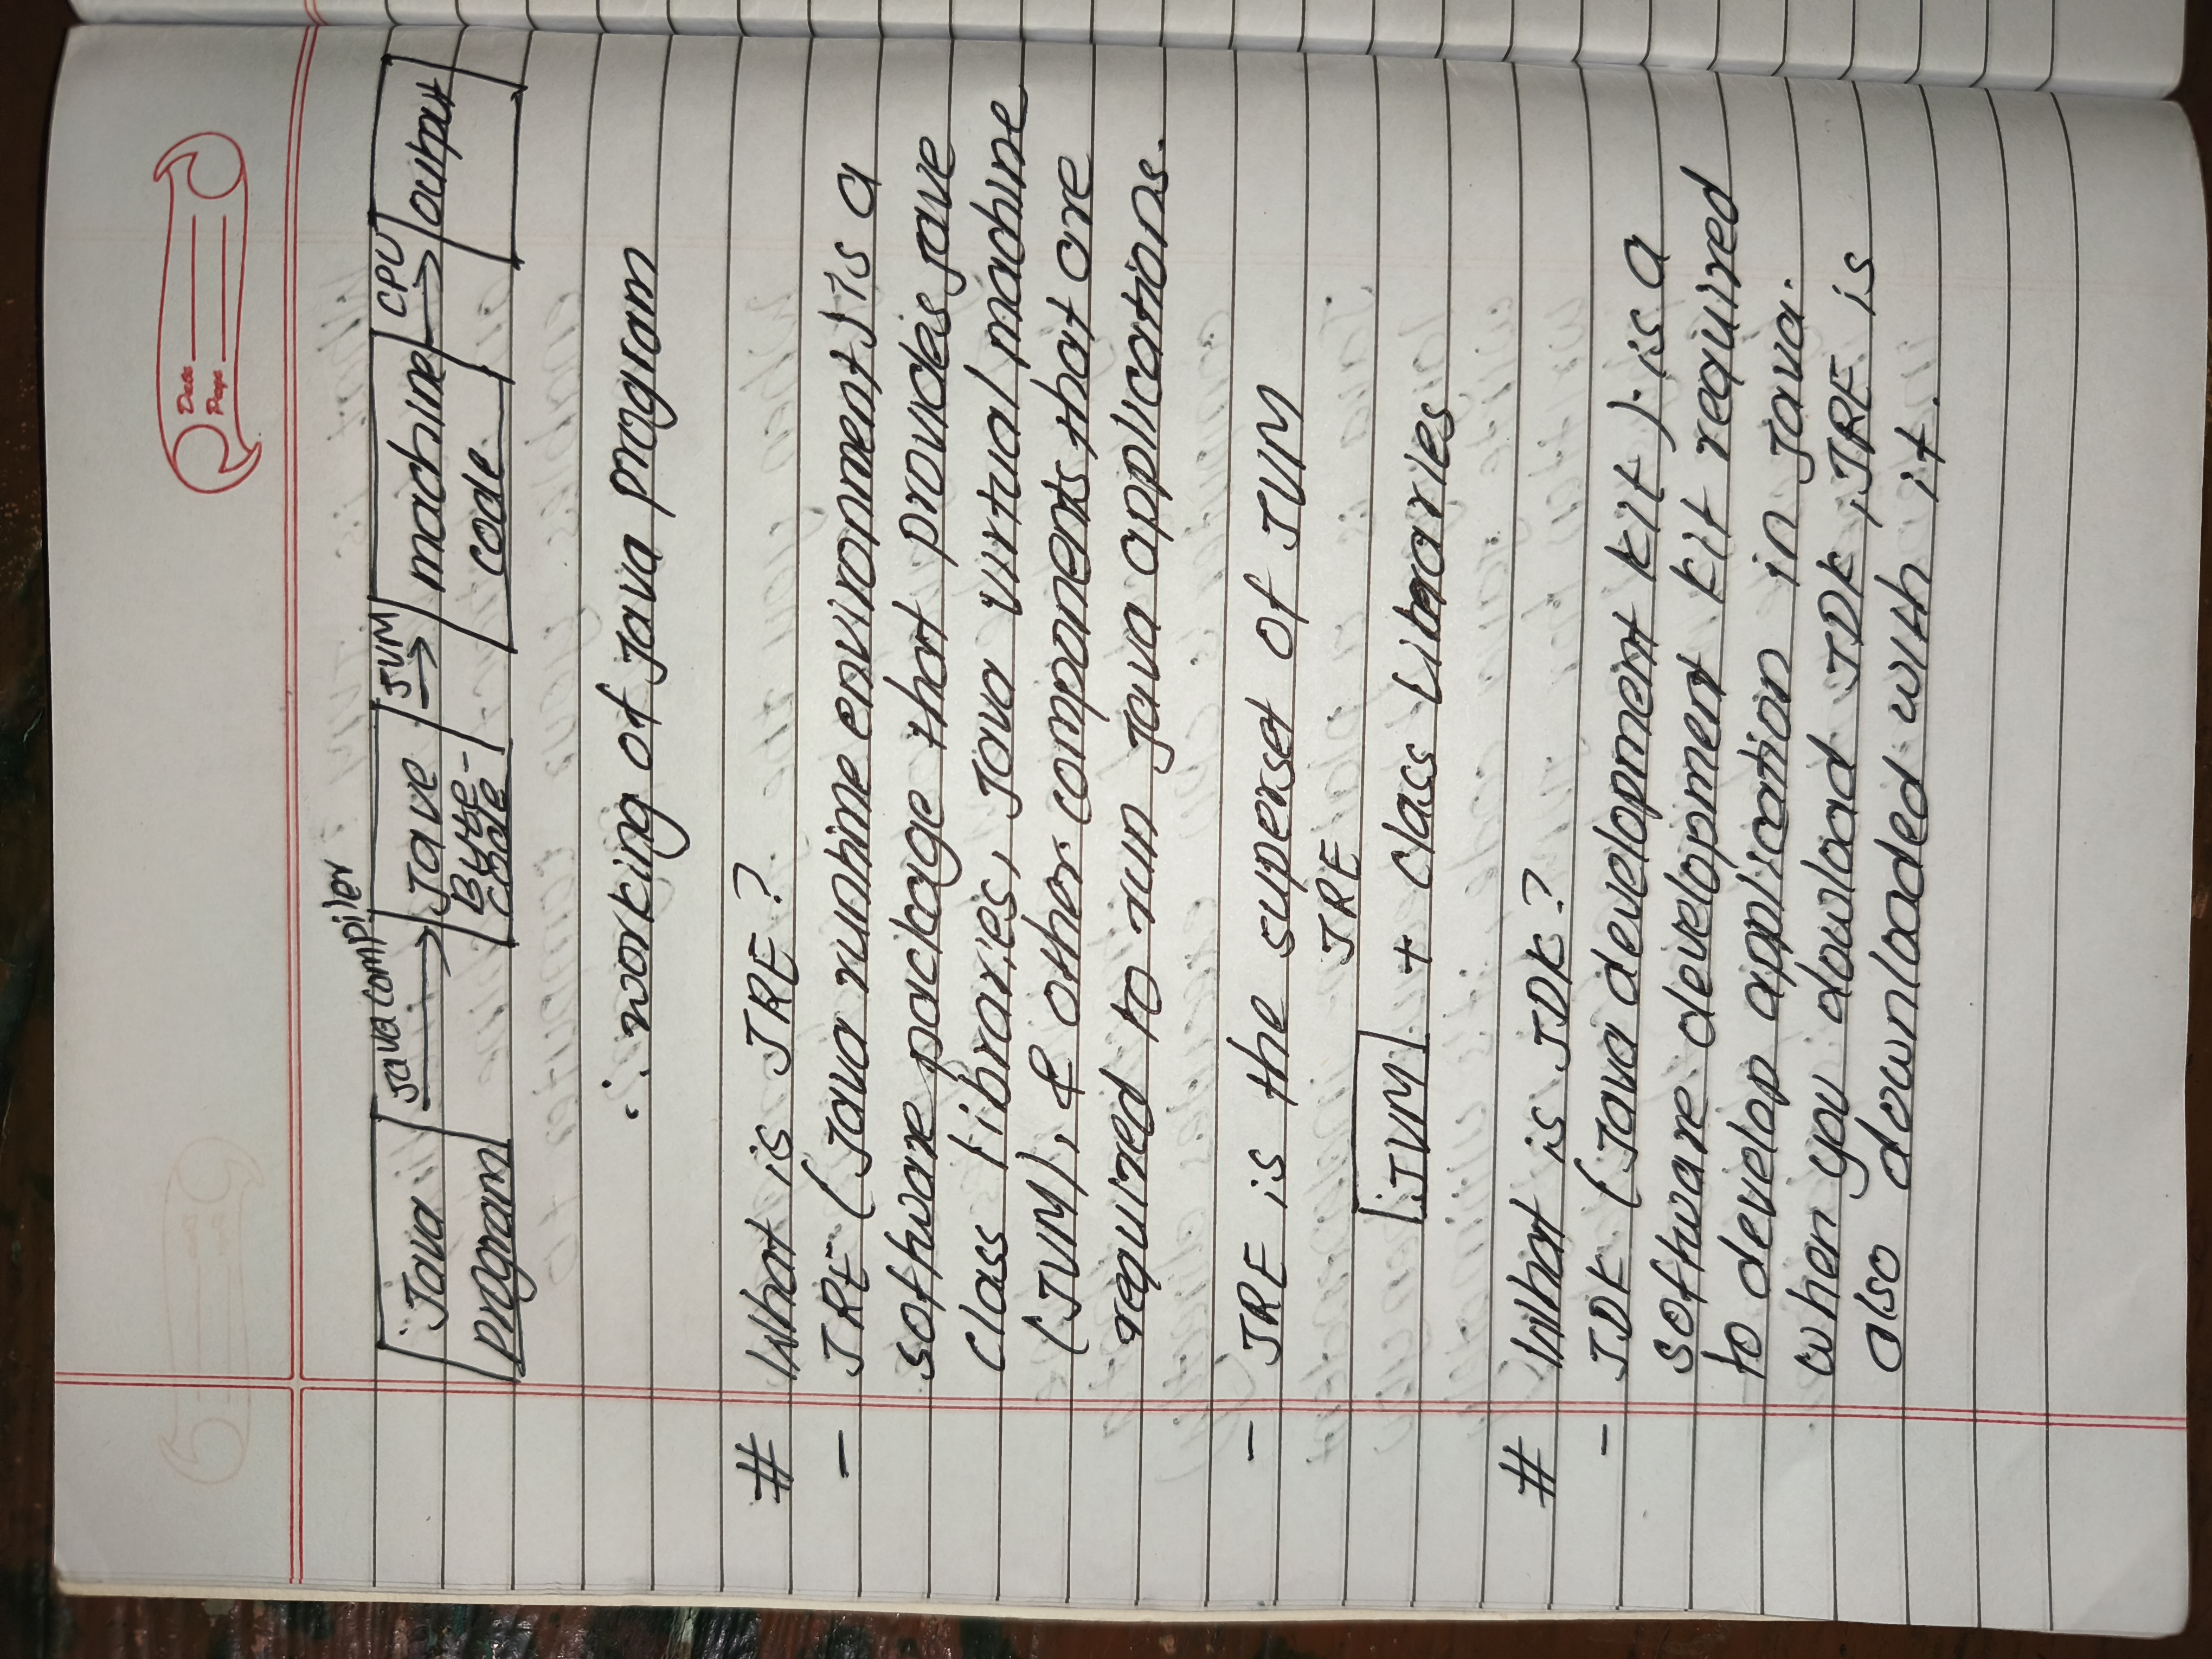 Date
Page
Java compiler
Java JVM machine CPU output
program Jave Byte- code code
∴ working of Java program
# What is JRE?
- JRE (Java runtime environment) is a
software package that provides Jave
class libraries, Java virtual machine
(JVM), & other components that are
required to run Java applications.
- JRE is the superset of JVM
JRE
JVM + class Libraries
# What is JDK?
- JDK (Java development kit) is a
software development kit required
to develop application in Java.
when you download JDK, JRE is
also downloaded with it.